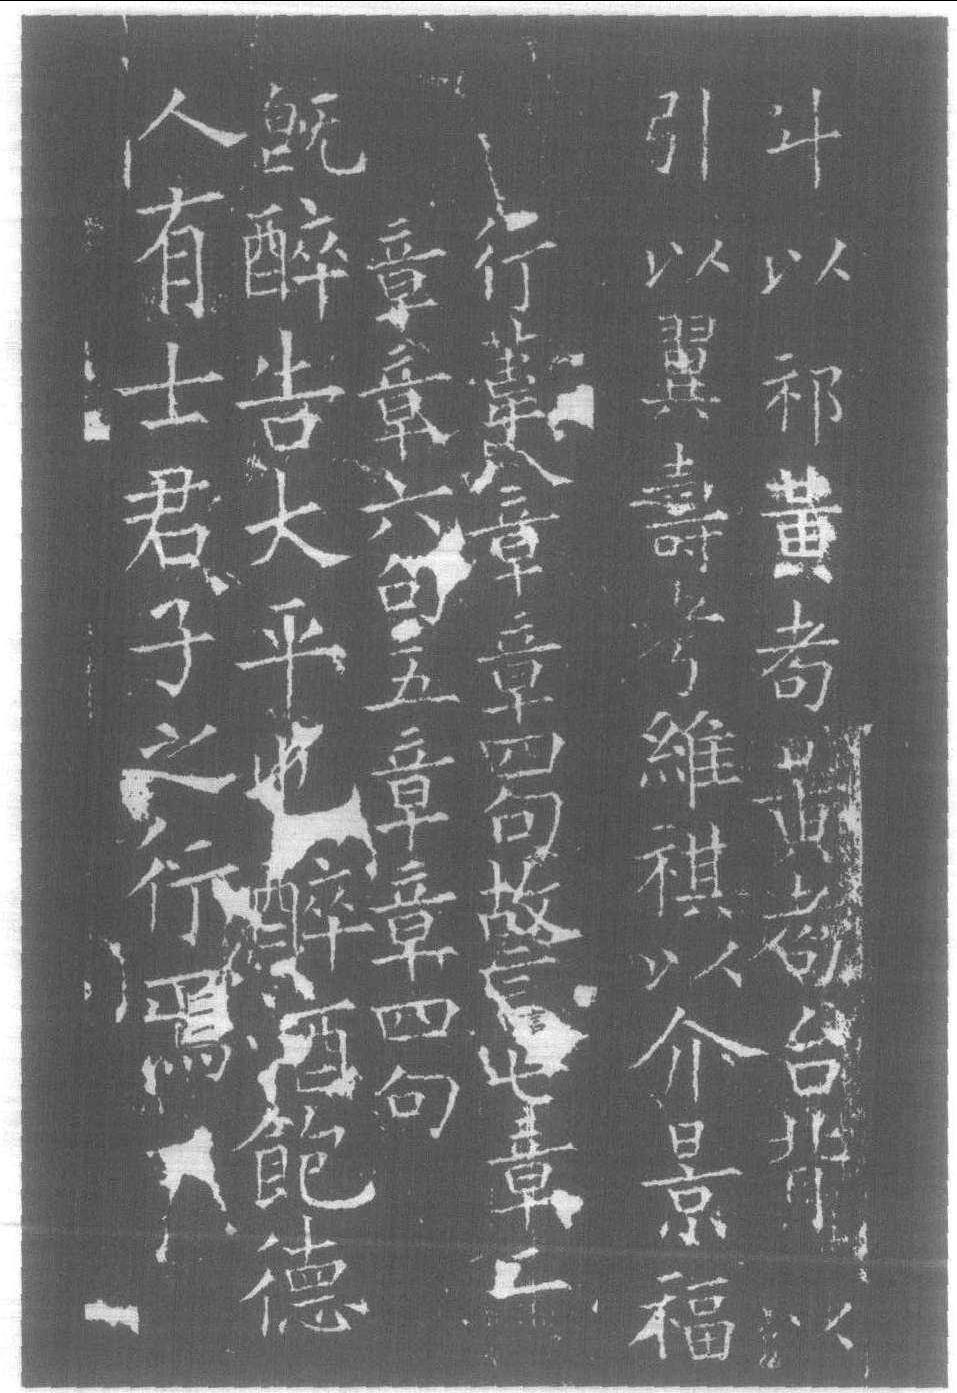 斗以祁黃耇黃耇台背以
引以翼壽考維祺以介景福
行葦八章章四句故言七章二
章章六句五章章四句
既醉告大平也醉酒飽德
人有士君子之行焉